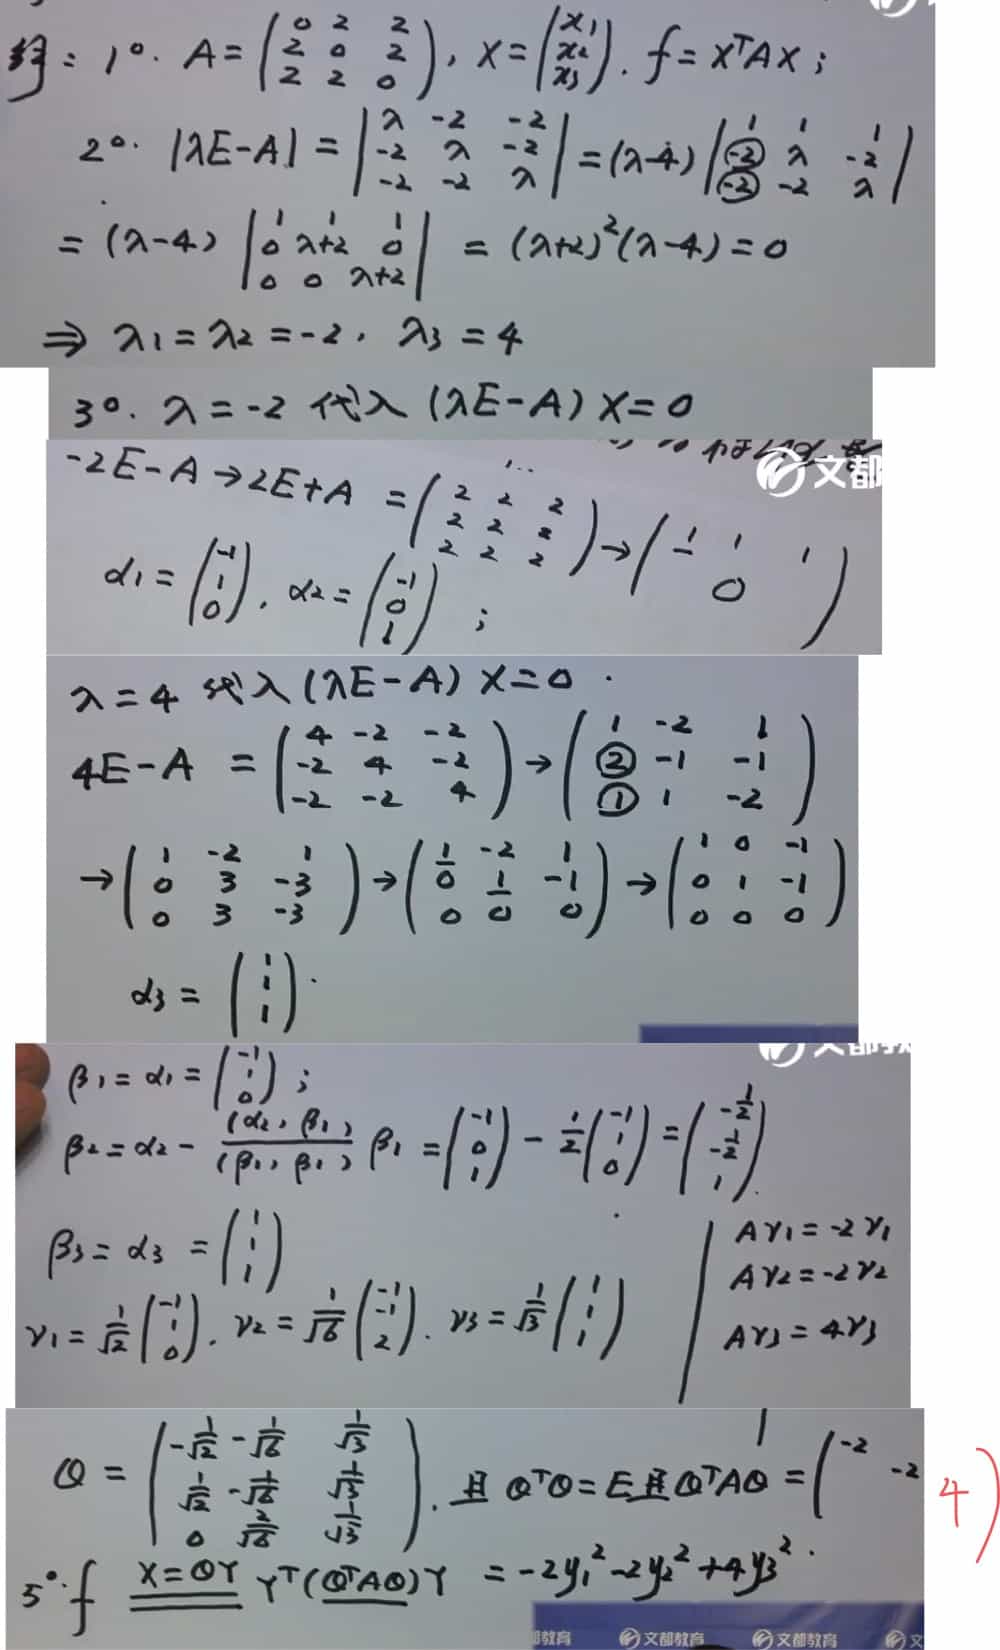 解: 1°. A = (0 2 2
2 0 2
2 2 0), X = (x1
x2
x3). f = XᵀAX;
2°. |λE-A| = |λ -2 -2
-2 λ -2
-2 -2 λ| = (λ-4) |1 1 1
-2 λ -2
-2 -2 λ|
= (λ-4) |1 1 1
0 λ+2 0
0 0 λ+2| = (λ+2)²(λ-4) = 0
⇒ λ1 = λ2 = -2, λ3 = 4
3°. λ = -2 代入 (λE-A) X = 0
文都
-2E-A → 2E+A = (2 2 2
2 2 2
2 2 2) → (1 1 1
0)
α1 = (-1
1
0), α2 = (-1
0
1);
λ = 4 代入 (λE-A) X = 0.
4E-A = (4 -2 -2
-2 4 -2
-2 -2 4) → (1 -2 1
2 -1 -1
1 1 -2)
→ (1 -2 1
0 3 -3
0 3 -3) → (1 -2 1
0 1 -1
0 0 0) → (1 0 -1
0 1 -1
0 0 0)
α3 = (1
1
1).
文都教
β1 = α1 = (-1
1
0);
β2 = α2 - (α2, β1)/(β1, β1) β1 = (-1
0
1) - 1/2 (-1
1
0) = (-1/2
-1/2
1).
β3 = α3 = (1
1
1)
γ1 = 1/√2 (-1
1
0). γ2 = 1/√6 (-1
-1
2). γ3 = 1/√3 (1
1
1)
Aγ1 = -2γ1
Aγ2 = -2γ2
Aγ3 = 4γ3
Q = (-1/√2 -1/√6 1/√3
1/√2 -1/√6 1/√3
0 2/√6 1/√3). 且 QᵀQ = E 且 QᵀAQ = (-2
-2
4)
5°. f X=QY Yᵀ(QᵀAQ)Y = -2y1² - 2y2² + 4y3².
都教育 文都教育 文都教育 文